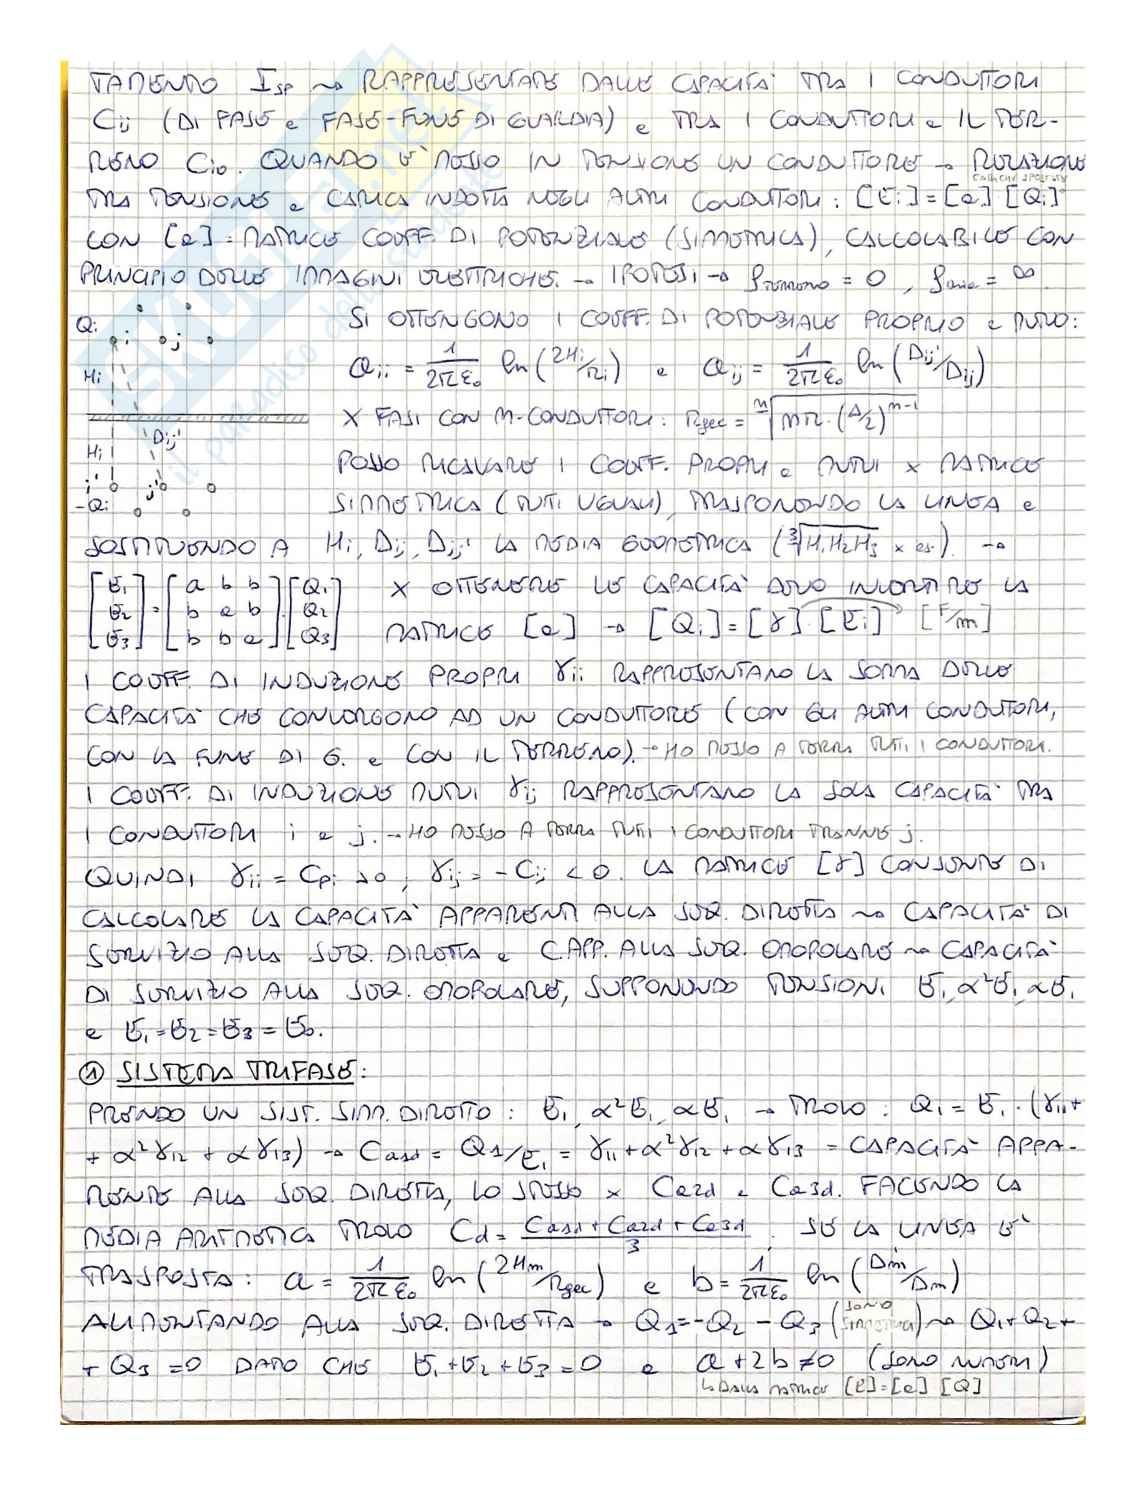 TAMENTO Isp ⇝ RAPPRESENTATE DALLE CAPACITÀ TRA I CONDUTTORI
Cij (DI FASE e FASE-FUNE DI GUARDIA) e TRA I CONDUTTORI e IL TER-
RENO Cio. QUANDO È MESSO IN TENSIONE UN CONDUTTORE → RELAZIONE
TRA TENSIONE e CARICA INDOTTA NEGLI ALTRI CONDUTTORI: [Ei] = [a]·[Qi]
CON [a] = MATRICE COEFF. DI POTENZIALE (SIMMETRICA), CALCOLABILE CON
PRINCIPIO DELLE IMMAGINI ELETTRICHE. → IPOTESI → ρterreno = 0, ρaria = ∞
SI OTTENGONO I COEFF. DI POTENZIALE PROPRIO e MUTUO:
Qi i j
Hi
aii = 1/2πε₀ ln(2Hi/ri) e aij = 1/2πε₀ ln(Dij'/Dij)
X FASI CON M-CONDUTTORI: rgec = ᵐ√(m r·(Δ/2)^(m-1))
Hi Dij'
i' j'
-Qi
POSSO RICAVARE I COEFF. PROPRI e MUTUI X MATRICE
SIMMETRICA (TUTI UGUALI), TRASPONENDO LA LINEA e
SOSTITUENDO A Hi, Dij, Dij' LA MEDIA GEOMETRICA (³√(H₁H₂H₃) x es.). →
[E1 E2 E3] = [a b b; b a b; b b a] [Q1 Q2 Q3] X OTTENERE LE CAPACITÀ DEVO INVERTIRE LA
MATRICE [a] → [Qi] = [γ]·[Ei] [F/m]
I COEFF. DI INDUZIONE PROPRI γii RAPPRESENTANO LA SOMMA DELLE
CAPACITÀ CHE CONVERGONO AD UN CONDUTTORE (CON GLI ALTRI CONDUTTORI,
CON LA FUNE DI G. e CON IL TERRENO). → HO MESSO A TERRA TUTTI I CONDUTTORI.
I COEFF. DI INDUZIONE MUTUI γij RAPPRESENTANO LA SOLA CAPACITÀ TRA
I CONDUTTORI i e j. → HO MESSO A TERRA TUTTI I CONDUTTORI TRANNE j.
QUINDI γii = Cpi > 0, γij = -Cij < 0. LA MATRICE [γ] CONSENTE DI
CALCOLARE LA CAPACITÀ APPARENTI ALLA SEQ. DIRETTA ⇝ CAPACITÀ DI
SERVIZIO ALLA SEQ. DIRETTA e C.APP. ALLA SEQ. OMOPOLARE ⇝ CAPACITÀ
DI SERVIZIO ALLA SEQ. OMOPOLARE, SUPPONENDO TENSIONI E1, α²E1, αE1
e E1 = E2 = E3 = E0.
① SISTEMA TRIFASE:
PRENDO UN SIST. SIMM. DIRETTO: E1, α²E1, αE1 → TROVO: Q1 = E1·(γ11+
+ α²γ12 + αγ13) → Ca1d = Q1/E1 = γ11 + α²γ12 + αγ13 = CAPACITÀ APPA-
RENTE ALLA SEQ. DIRETTA, LO STESSO X Ca2d e Ca3d. FACENDO LA
MEDIA ARITMETICA TROVO Cd = (Ca1d + Ca2d + Ca3d)/3. SE LA LINEA È
TRASPOSTA: a = 1/2πε₀ ln(2Hm/rgec) e b = 1/2πε₀ ln(Dm'/Dm)
ALIMENTANDO ALLA SEQ. DIRETTA → Q1 = -Q2 - Q3 (SONO SIMMETRICI) ⇝ Q1 + Q2 +
+ Q3 = 0 DATO CHE E1 + E2 + E3 = 0 e a + 2b ≠ 0 (SONO NUMERI)
↳ DALLA MATRICE [E] = [a] [Q]